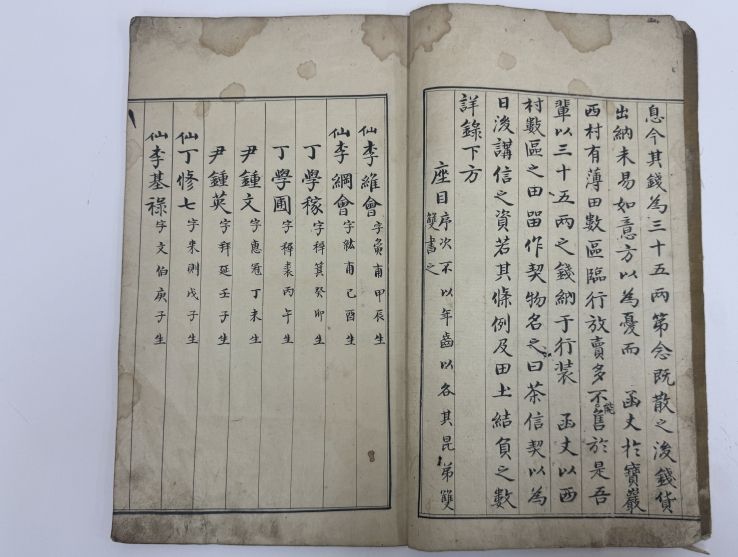 息今其錢為三十五兩第念既散之後錢貨
出納未易如意方以為憂而 函丈於寶巖
西村有薄田數區臨行放賣多不能售於是吾
輩以三十五兩之錢納于行裝 函丈以西
村數區之田留作契物名之曰茶信契以為
日後講信之資若其條例及田土結負之數
詳錄下方
座目 序次不以年齒以各其昆弟雙
雙書之
仙 李維會 字 甫甲辰生
仙 李綱會 字紘甫己酉生
丁學稼 字稺箕癸卯生
丁學圃 字稺裘丙午生
尹鍾文 字惠冠丁未生
尹鍾英 字拜延壬子生
仙 丁修七 字來則戊子生
仙 李基祿 字文伯庚子生